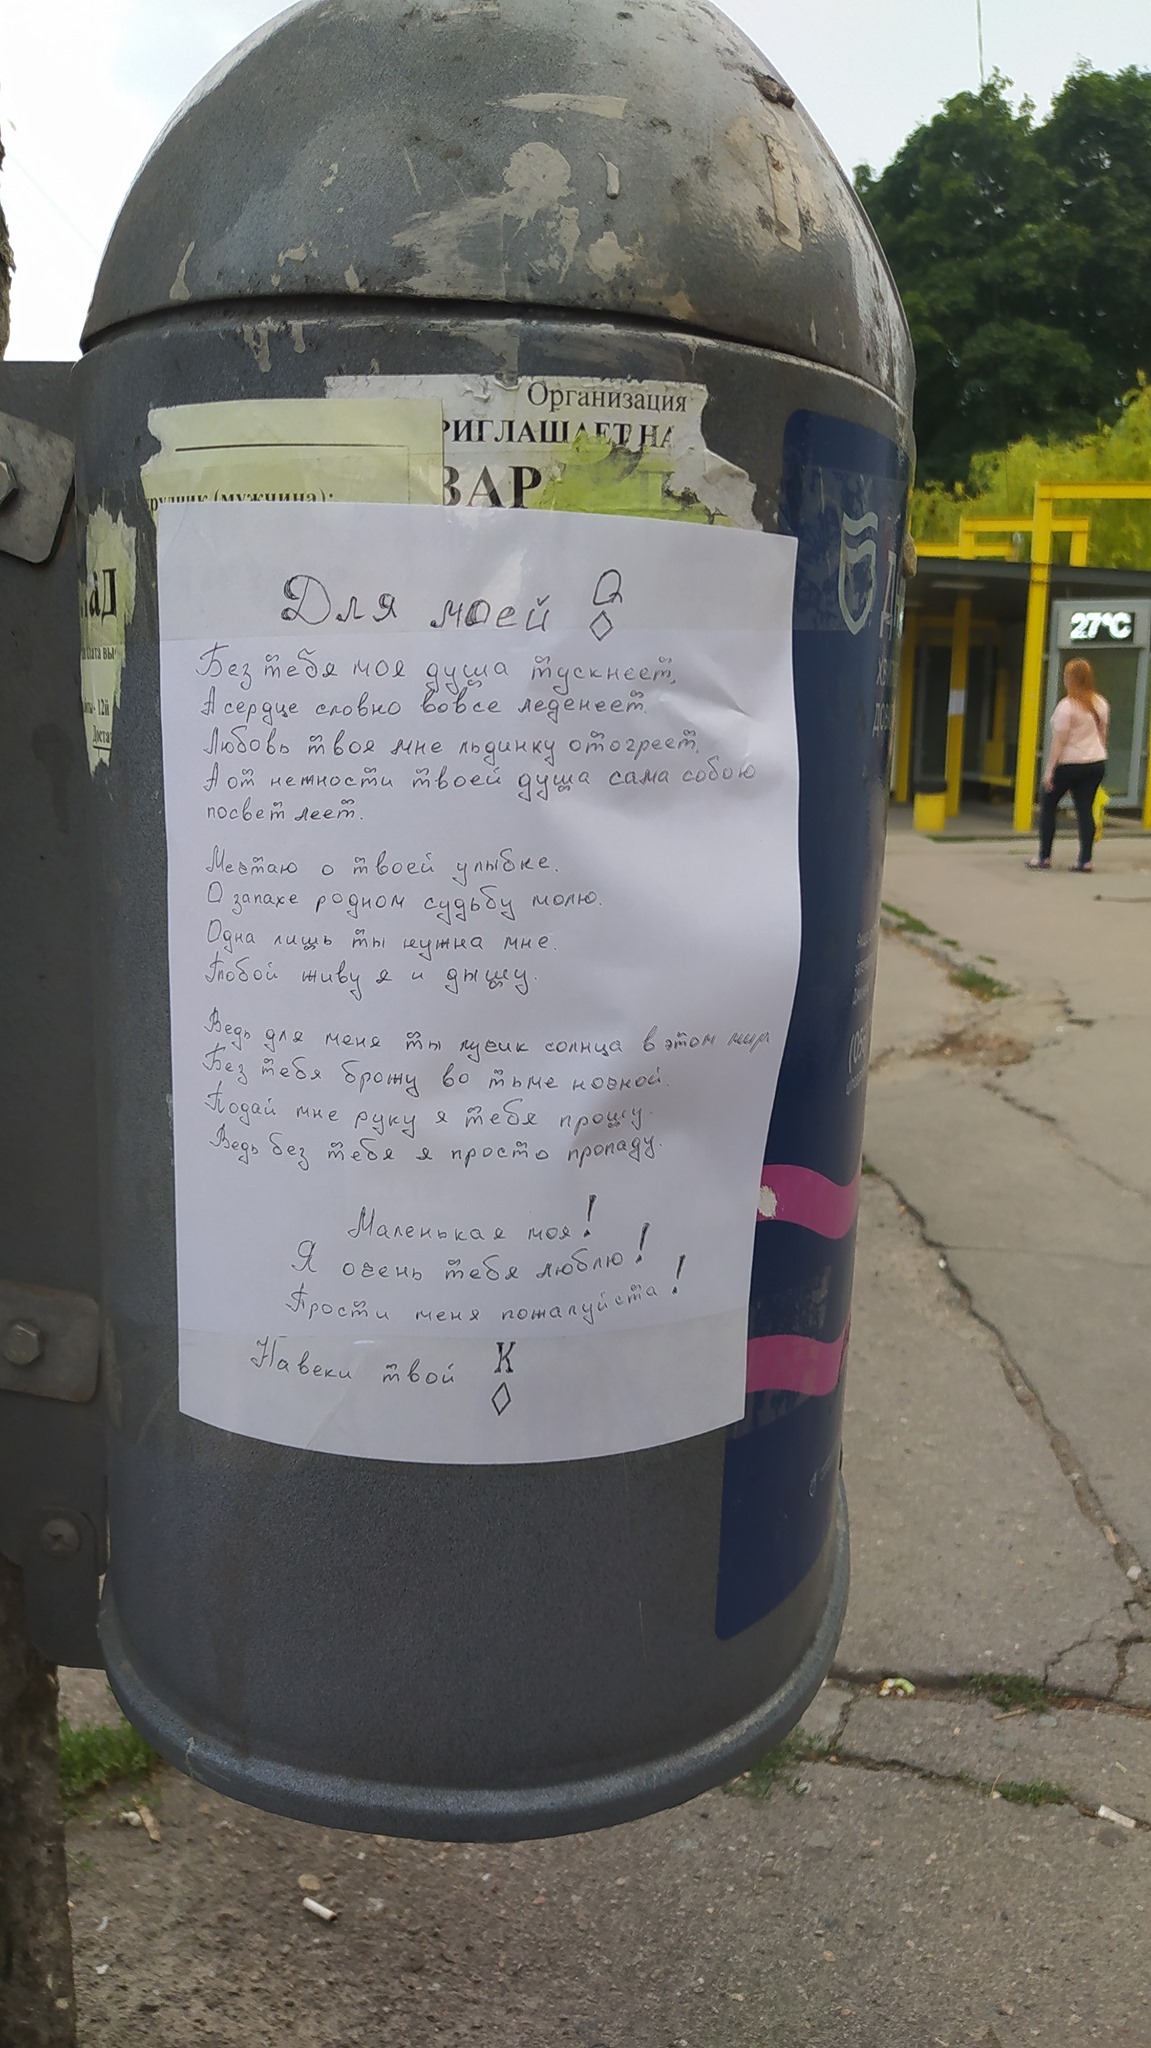 Организация
РИГЛАШАЕТ НА
ВАР
(мужчина):
Для моей Q
◊
Без тебя моя душа тускнеет,
А сердце словно вовсе леденеет.
Любовь твоя мне льдинку отогреет,
А от нежности твоей душа сама собою
посветлеет.
Мечтаю о твоей улыбке.
О запахе родном судьбу молю.
Одна лишь ты нужна мне.
Тобой живу я и дышу.
Ведь для меня ты лучик солнца в этом мире
Без тебя брожу во тьме ночной.
Подай мне руку я тебя прошу.
Ведь без тебя я просто пропаду.
Маленькая моя!
Я очень тебя люблю!
Прости меня пожалуйста!
Навеки твой К
◊
27°C